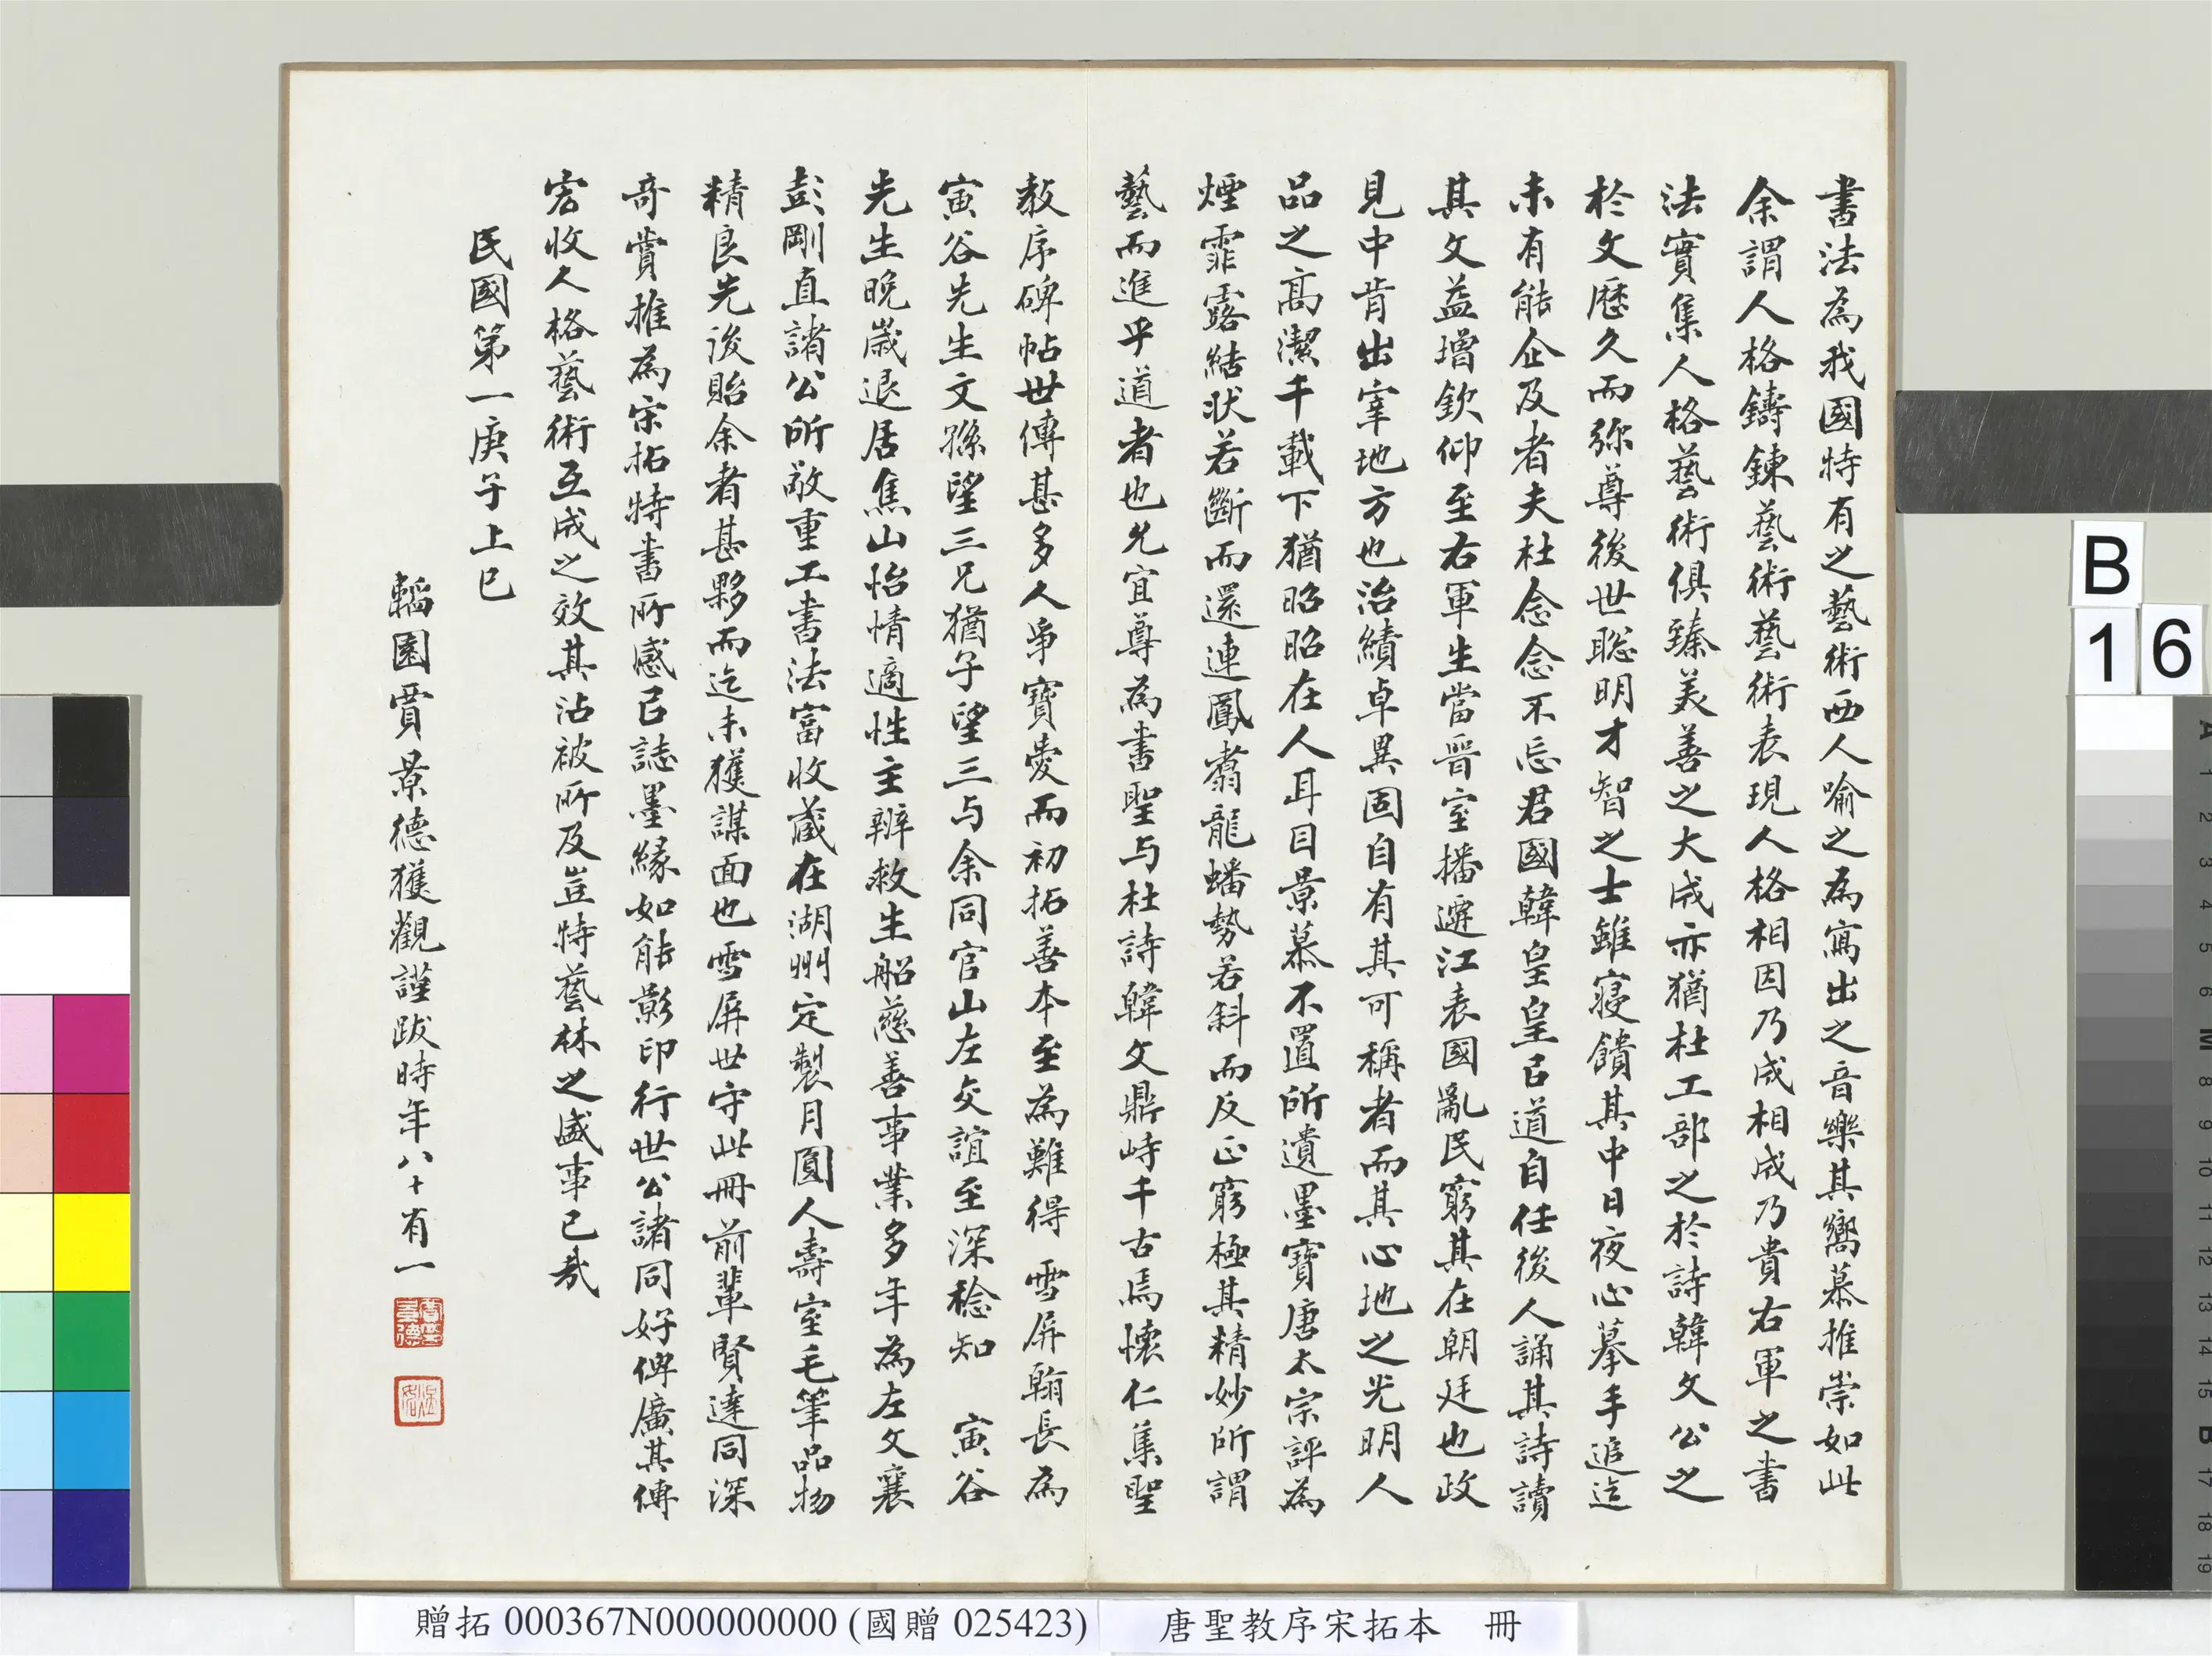 書法為我國特有之藝術西人喻之為寫出之音樂其嚮慕推崇如此
余謂人格鑄鍊藝術藝術表現人格相因乃成相成乃貴右軍之書
法實集人格藝術俱臻美善之大成亦猶杜工部之於詩韓文公之
於文歷久而彌尊後世聡明才智之士雖寢饋其中日夜心摹手追迄
未有能企及者夫杜念念不忘君國韓皇皇㠯道自任後人誦其詩讀
其文益增欽仰至右軍生當晉室播遷江表國亂民窮其在朝廷也政
見中肯出宰地方也治績卓異固自有其可稱者而其心地之光明人
品之高潔千載下猶昭昭在人耳目景慕不置所遺墨寶唐太宗評為
煙霏露結狀若斷而還連鳳翥龍蟠勢若斜而反正窮極其精妙所謂
藝而進乎道者也允宜尊為書聖与杜詩韓文鼎峙千古焉懷仁集聖
教序碑帖世傳甚多人爭寶愛而初拓善本至為難得 雪屏翰長為
寅谷先生文孫望三兄猶子望三与余同官山左交誼至深稔知 寅谷
先生晚歲退居焦山怡情適性主辦救生船慈善事業多年為左文襄
彭剛直諸公所敬重工書法富收藏在湖州定製月圓人壽室毛筆品物
精良先後貽余者甚夥而迄未獲謀面也雪屏世守此冊前輩賢達同深
奇賞推為宋拓特書所感㠯誌墨緣如能影印行世公諸同好俾廣其傳
宏收人格藝術互成之效其沾被所及豈特藝林之盛事已哉
民國第一庚子上巳
韜園賈景德獲觀謹跋時年八十有一
B
16
贈拓 000367N000000000 (國贈 025423) 唐聖教序宋拓本 冊